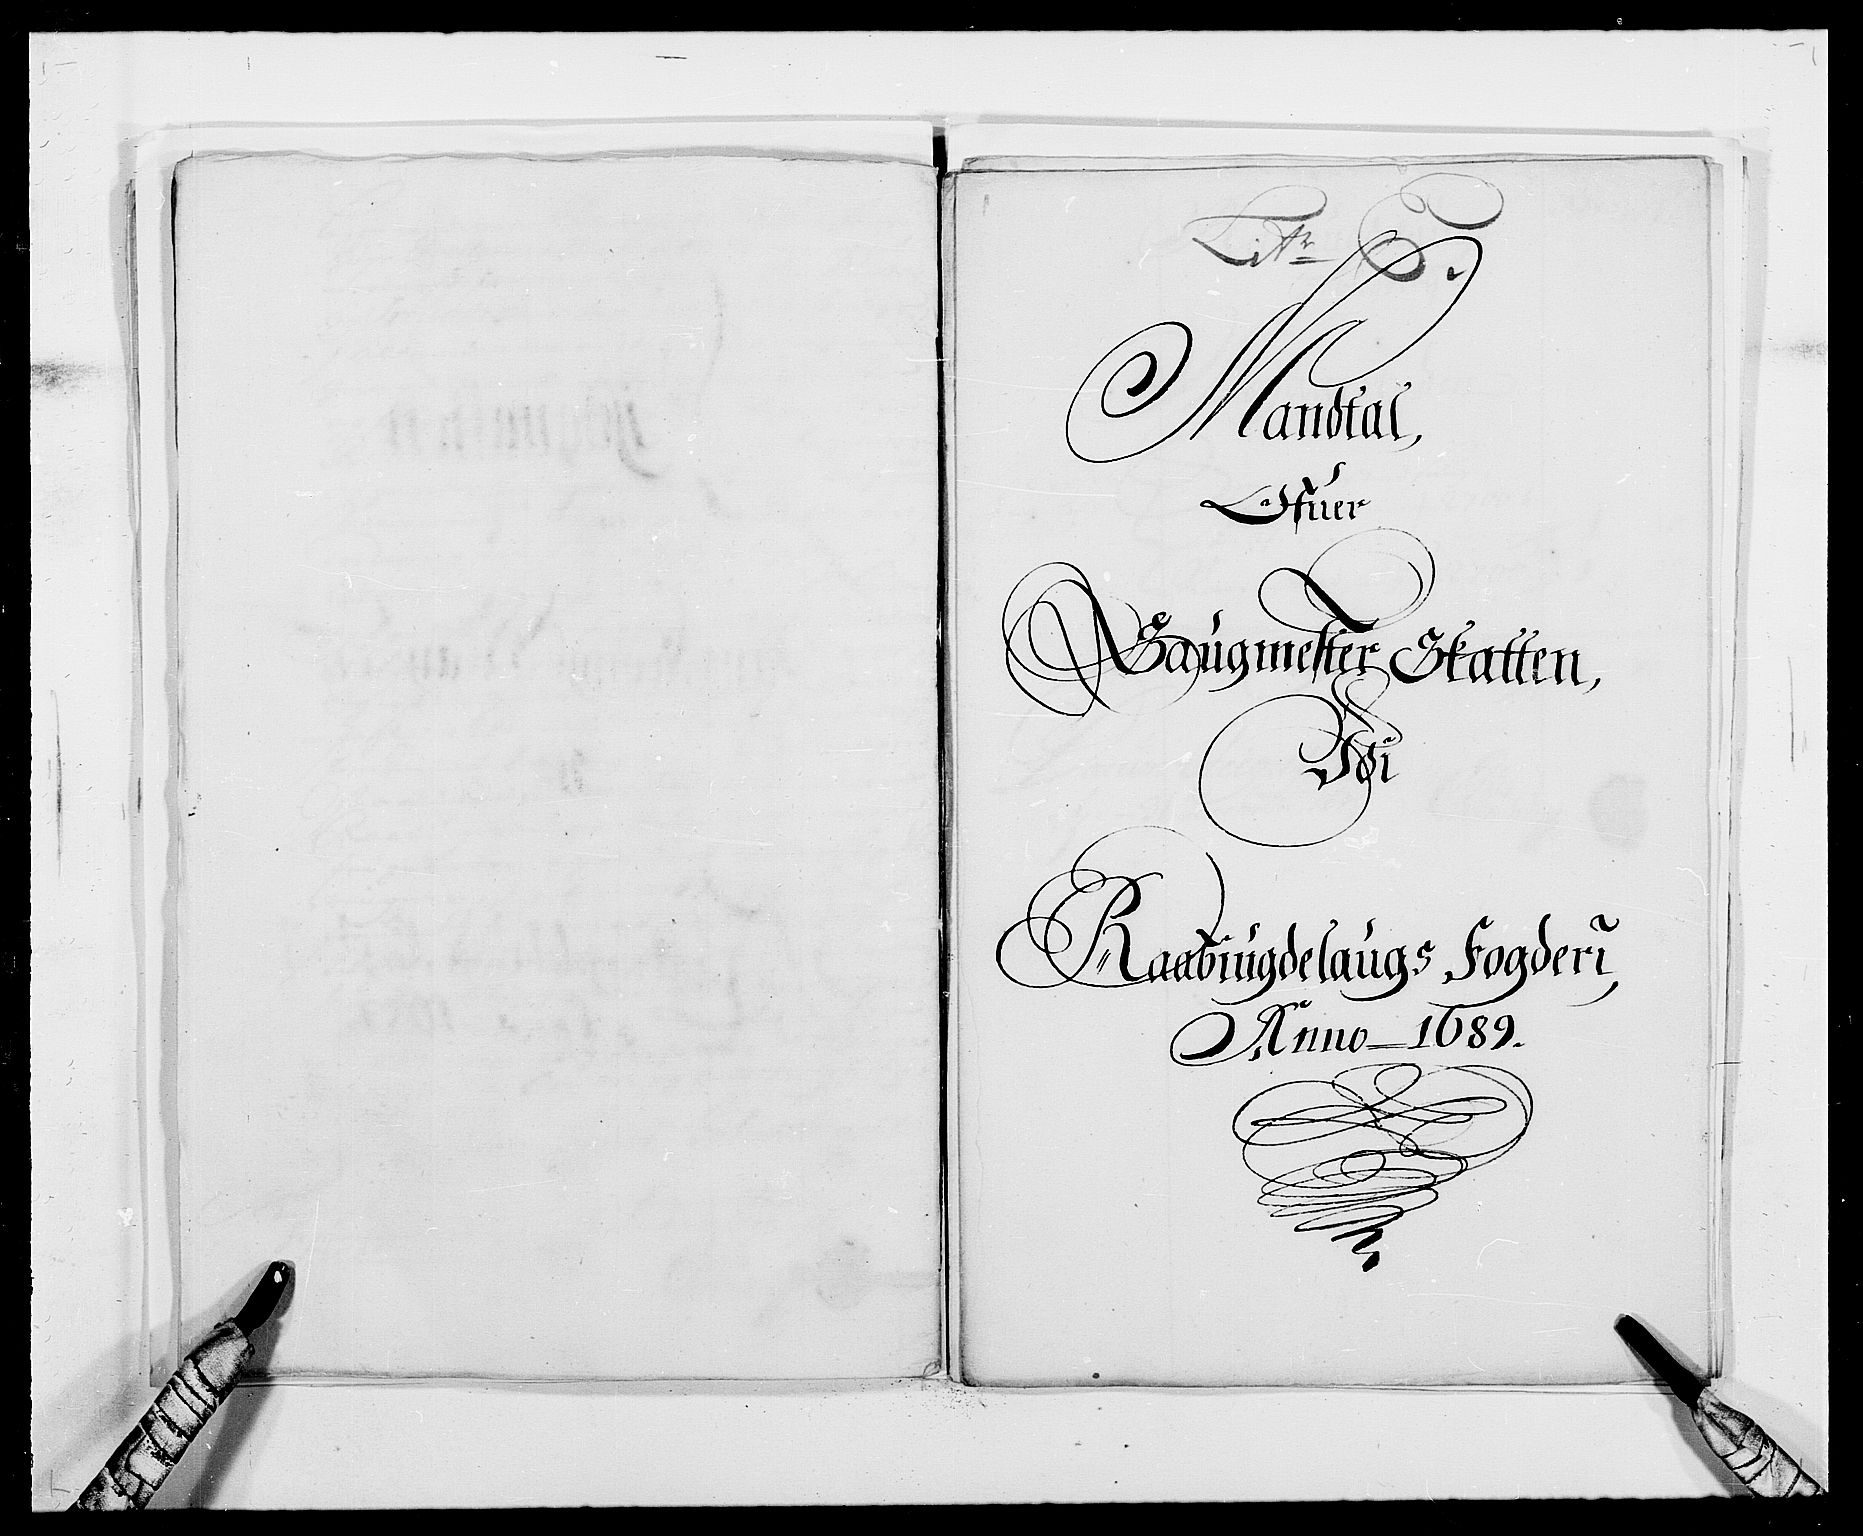 Litr
Mandtal,
Ofuer
Saugmester Skatten,
Udi
Raabiugdelaugs Fogderi,
Anno 1689.